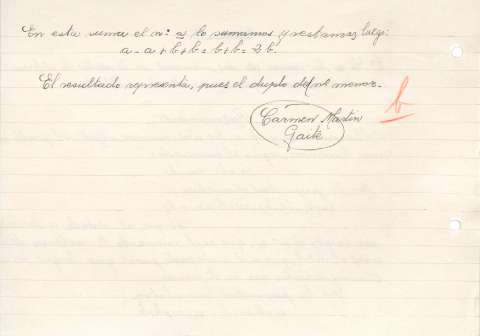 En esta suma el nº a lo sumamos y restamos luego:
a - a + b + b = b + b = 2 b.
El resultado representa, pues el duplo del nº menor.
b
Carmen Martin
Gaite